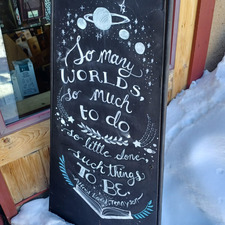 So many
WORLDS,
so much
to do
so little done
such things
TO BE.